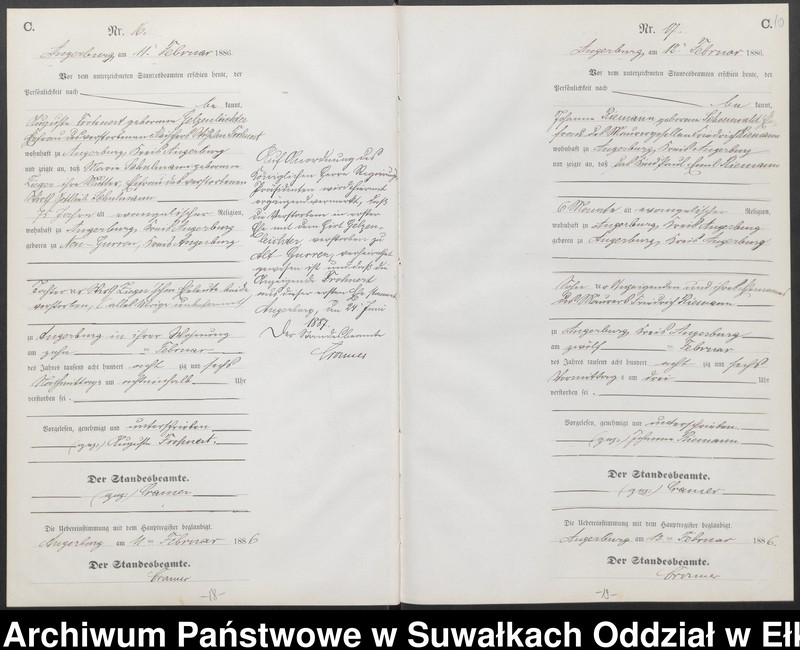 C.
Nr. 16.
Angerburg, am 11. Februar 1886.
Vor dem unterzeichneten Standesbeamten erschien heute, der
Persönlichkeit nach
be kannt,
Auguste Frohnert geborene Golzenleichter
Ehefrau des verstorbenen Frohnert
wohnhaft zu Angerburg, Kreis Angerburg
und zeigte an, daß Marie geborene
ihre Mutter, Ehefrau des verstorbenen
Jahre alt, evangelischer Religion,
wohnhaft zu Angerburg, Kreis Angerburg
geboren zu Neu-Gurren, Kreis Angerburg
Tochter der Eheleute beide
verstorben, alles Übrige unbekannt
zu Angerburg in ihrer Wohnung
am zehn ten Februar
des Jahres tausend acht hundert acht zig und sechs
Nachmittags um achteinhalb Uhr
verstorben sei.
Vorgelesen, genehmigt und unterschrieben
(gez.) Auguste Frohnert.
Der Standesbeamte.
(gez.) Cramer
Die Uebereinstimmung mit dem Hauptregister beglaubigt.
Angerburg am 11 ten Februar 1886
Der Standesbeamte.
Cramer
-18-
Auf Anordnung des
Königlichen Herrn Regierungs
Präsidenten wird hiermit
ergänzend vermerkt, daß
die Verstorbene in erster
Ehe mit dem Golzen
leichter, verstorben zu
Alt Gurren, verheirathet
gewesen ist und daß die
Anzeigende Frohnert
aus dieser ersten Ehe stammt.
Angerburg, den 24. Juni
1887.
Der Standesbeamte
Cramer
C.
10
Nr. 17.
Angerburg, am 12. Februar 1886.
Vor dem unterzeichneten Standesbeamten erschien heute, der
Persönlichkeit nach
be kannt,
Johanna Riemann geborene Ehe
frau des Maurergesellen Friedrich Riemann
wohnhaft zu Angerburg, Kreis Angerburg
und zeigte an, daß das Kind Paul Emil Riemann
6 Monate alt, evangelischer Religion,
wohnhaft zu Angerburg, Kreis Angerburg
geboren zu Angerburg, Kreis Angerburg
Sohn der Anzeigenden und ihres Ehemannes
des Maurers Friedrich Riemann
zu Angerburg, Kreis Angerburg
am zwölf ten Februar
des Jahres tausend acht hundert acht zig und sechs
Vormittags um drei Uhr
verstorben sei.
Vorgelesen, genehmigt und unterschrieben.
(gez.) Johanna Riemann
Der Standesbeamte.
(gez.) Cramer
Die Uebereinstimmung mit dem Hauptregister beglaubigt.
Angerburg am 12 ten Februar 1886.
Der Standesbeamte.
Cramer
-19-
Archiwum Państwowe w Suwałkach Oddział w Eł